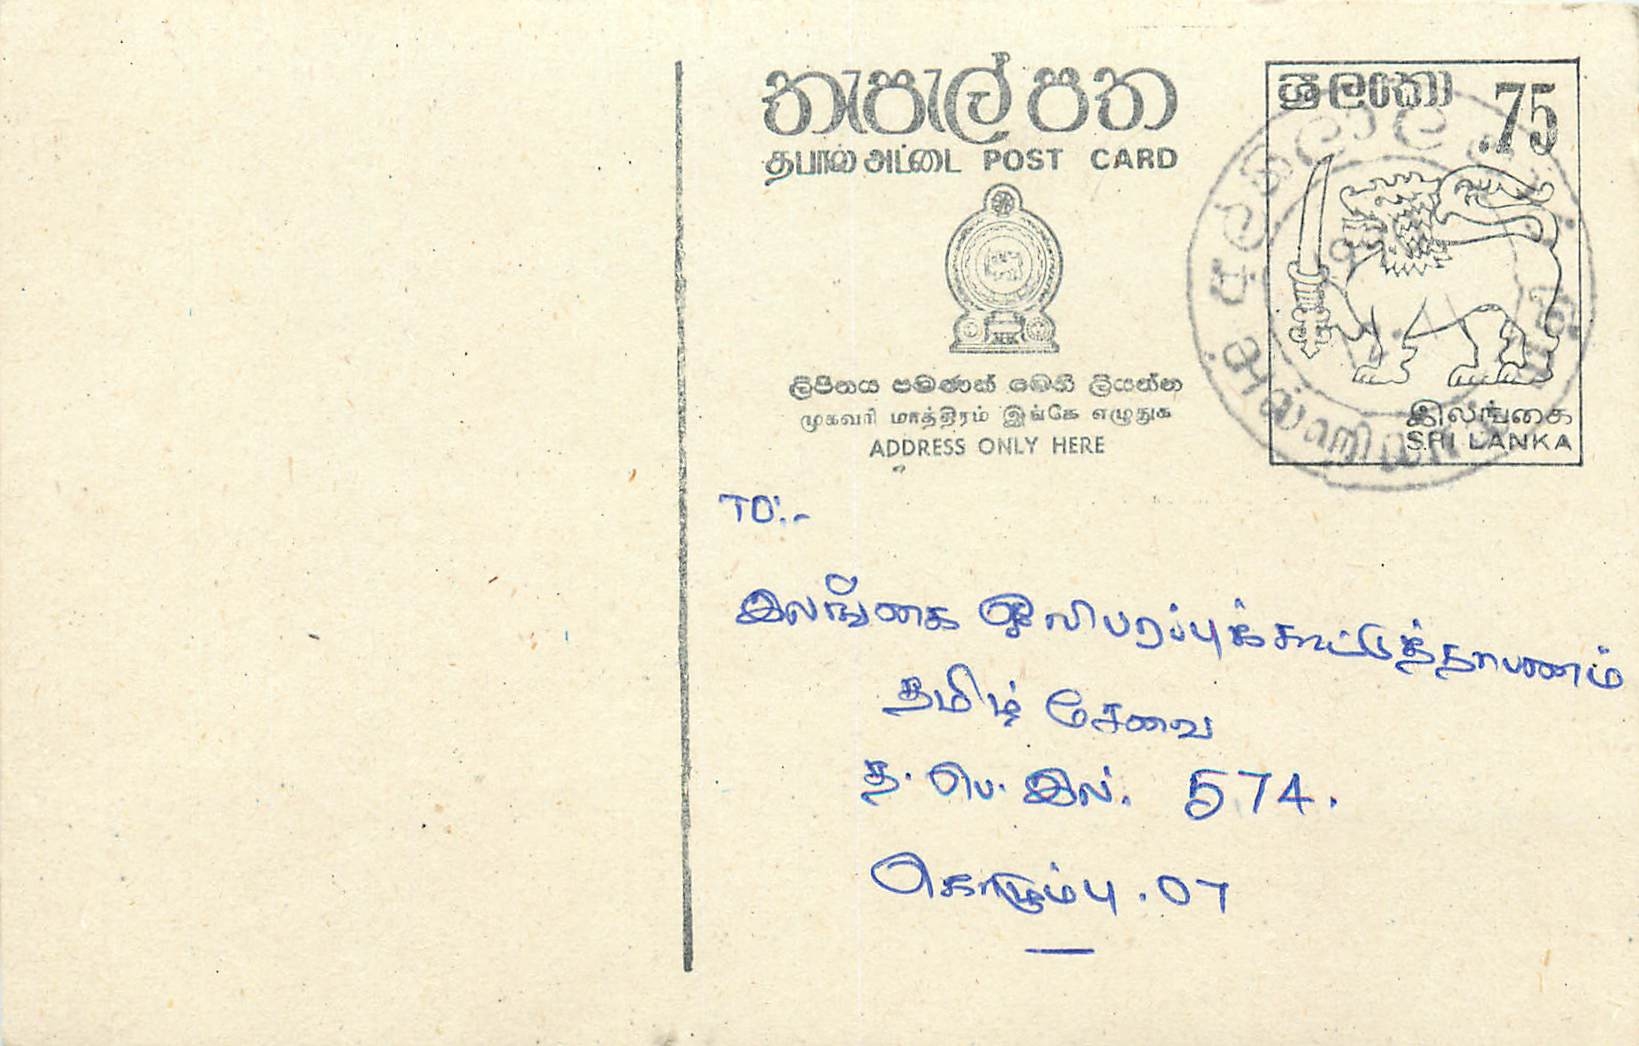 තැපැල් පත
தபால் அட்டை POST CARD
ලිපිනය පමණක් මෙහි ලියන්න
முகவரி மாத்திரம் இங்கே எழுதுக
ADDRESS ONLY HERE
ශ්‍රී ලංකා .75
இலங்கை
SRI LANKA
TO:-
இலங்கை ஒலிபரப்புக்கூட்டுத்தாபணம்
தமிழ் சேவை
த. பெ. இல. 574.
கொழும்பு. 07